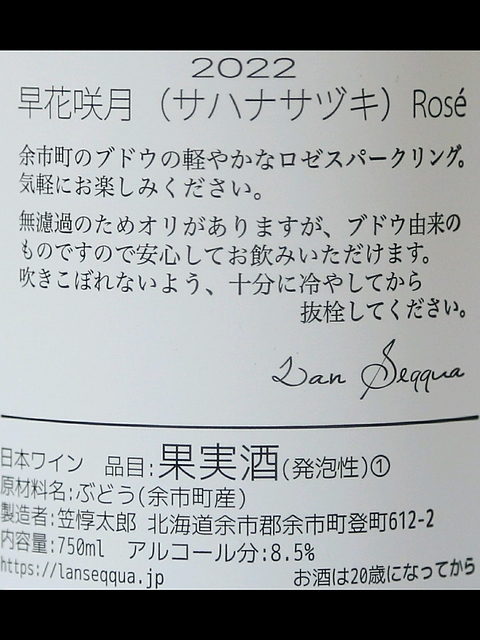 2022
早花咲月（サハナサヅキ）Rosé
余市町のブドウの軽やかなロゼスパークリング。
気軽にお楽しみください。
無濾過のためオリがありますが、ブドウ由来の
ものですので安心してお飲みいただけます。
吹きこぼれないよう、十分に冷やしてから
抜栓してください。
Lan Seqqua
日本ワイン 品目:果実酒(発泡性)①
原材料名:ぶどう(余市町産)
製造者:笠惇太郎 北海道余市郡余市町登町612-2
内容量:750ml アルコール分:8.5%
https://lanseqqua.jp お酒は20歳になってから